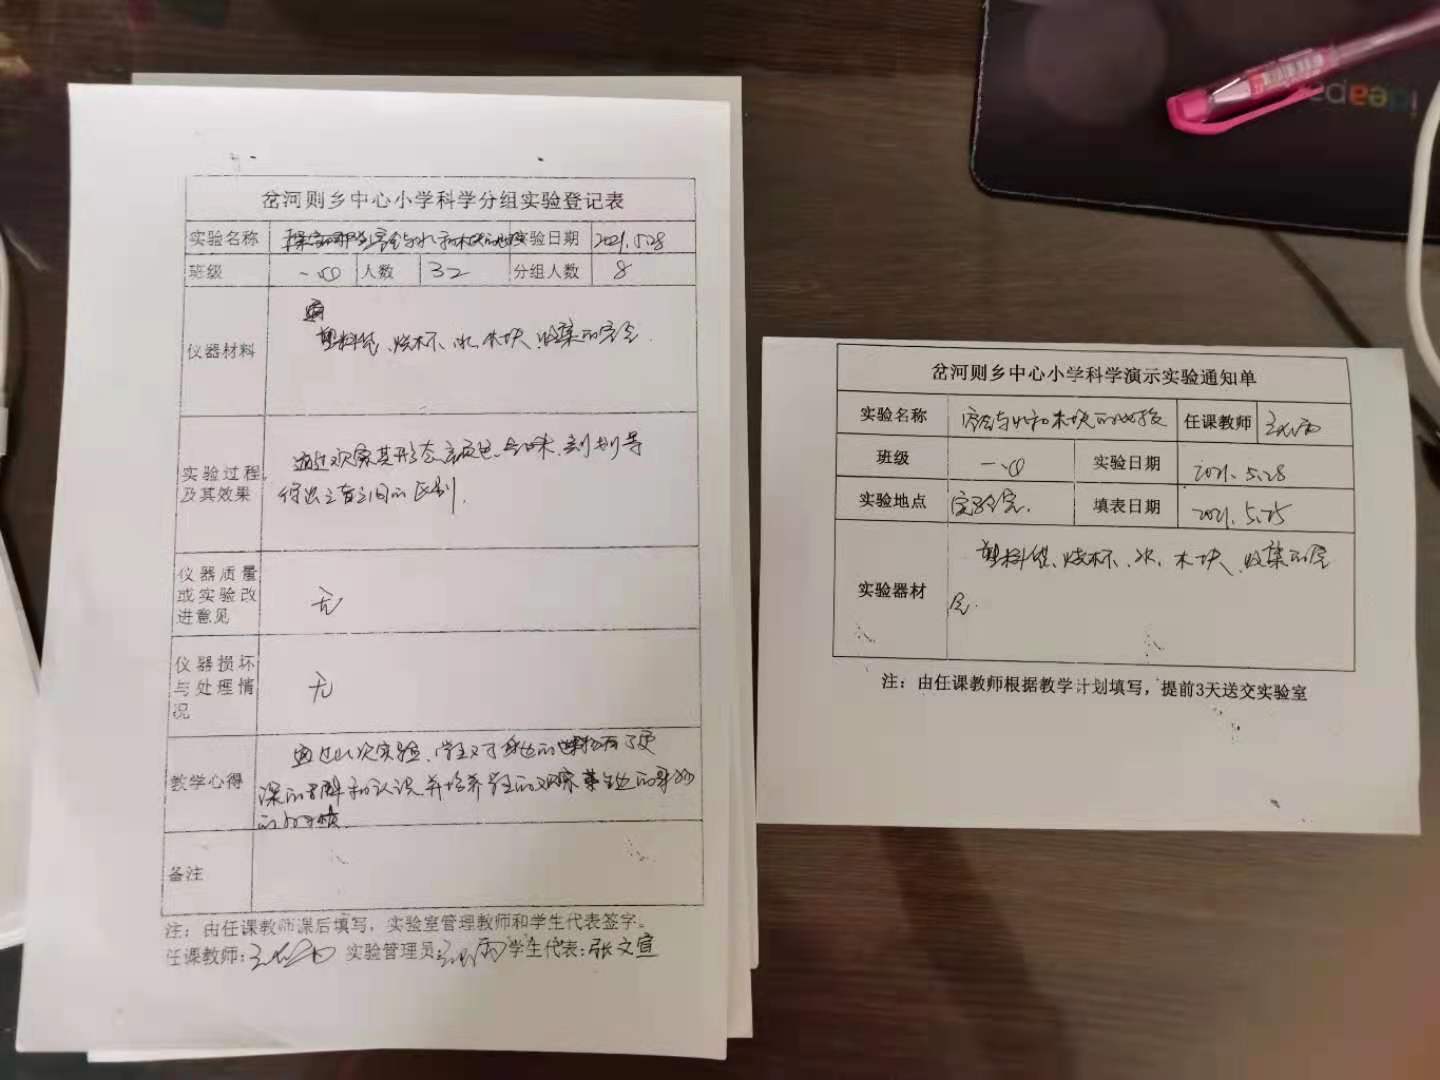 岔河则乡中心小学科学分组实验登记表
实验名称 空气与水和木块的比较 实验日期 2021.5.28
班级 一.(1) 人数 32 分组人数 8
仪器材料
塑料袋、烧杯、水、木块、收集的空气.
实验过程及其效果
通过观察其形态、颜色、气味、 等
得出三者之间的区别.
仪器质量或实验改进意见
无
仪器损坏与处理情况
无
教学心得
通过此次实验,学生对 有了更
深的了解和认识,并培养学生的观察
备注
注：由任课教师课后填写，实验室管理教师和学生代表签字。
任课教师: 实验管理员: 学生代表:张文宣
岔河则乡中心小学科学演示实验通知单
实验名称 空气与水和木块的比较 任课教师
班级 实验日期 2021.5.28
实验地点 实验室. 填表日期 2021.5.25
实验器材
塑料袋、烧杯、水、木块、收集的空
气.
注：由任课教师根据教学计划填写，提前3天送交实验室
ideapad